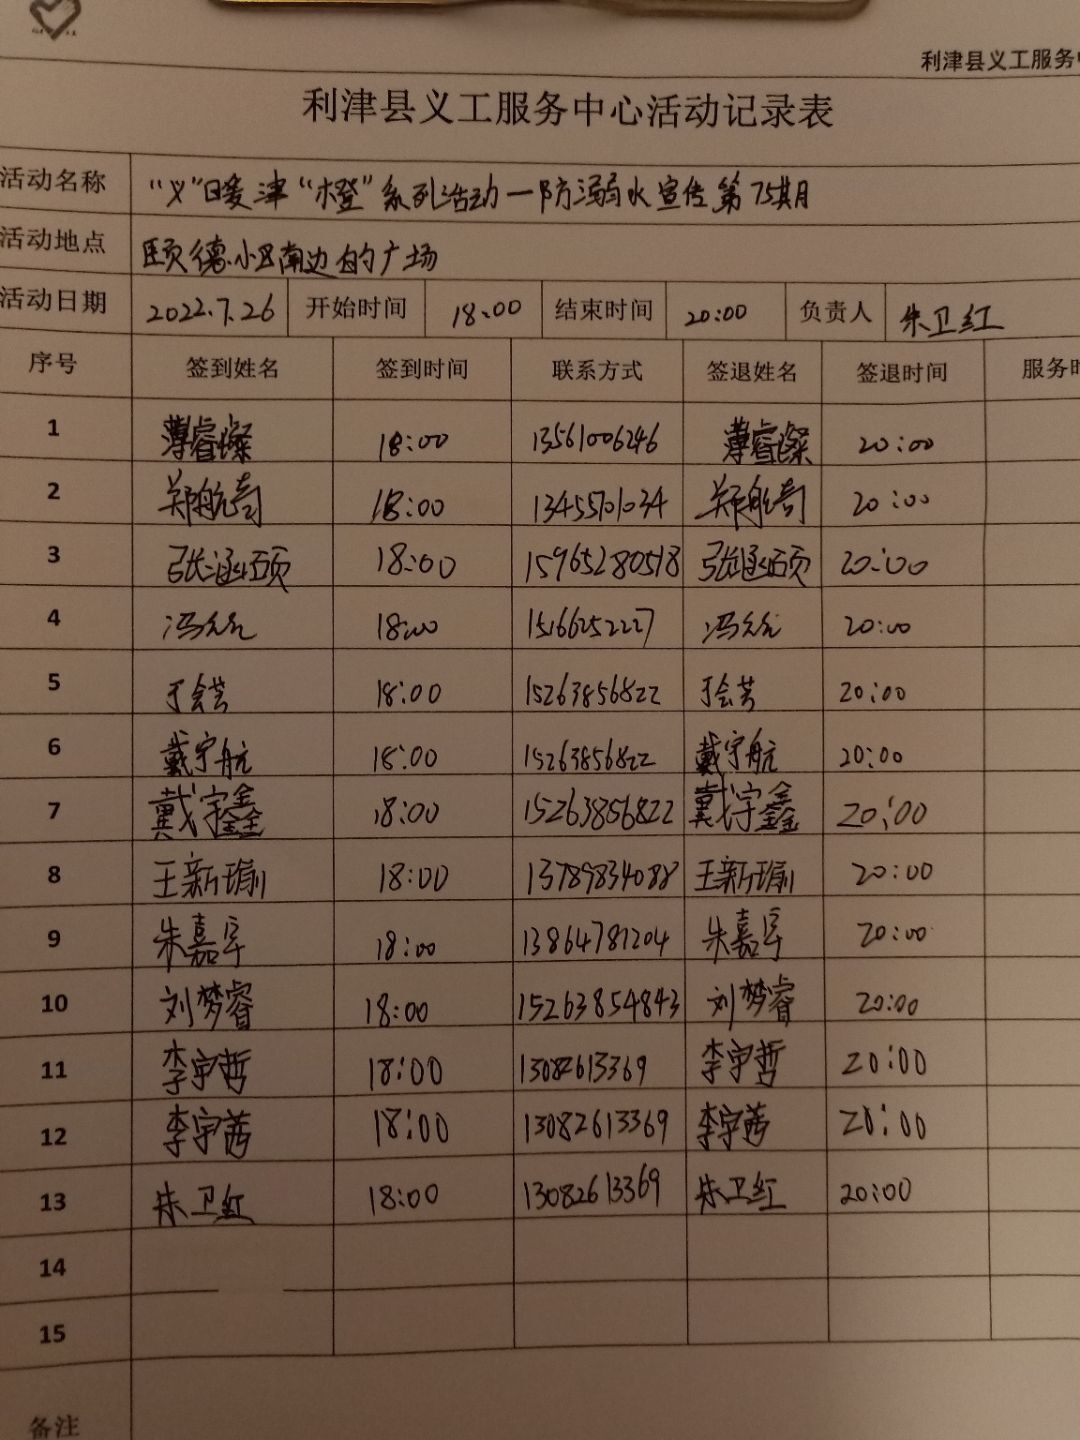 利津县义工服务
利津县义工服务中心活动记录表
活动名称 “义”暖津“橙”系列活动—防溺水宣传第75期
活动地点 颐德小区南边的广场
活动日期 2022.7.26 开始时间 18:00 结束时间 20:00 负责人 朱卫红
序号 签到姓名 签到时间 联系方式 签退姓名 签退时间 服务时
1 薄睿璨 18:00 13561006246 薄睿璨 20:00
2 郑航奇 18:00 20:00
3 张涵颐 18:00 15965280518 张涵颐 20:00
4 18:00 15166252227 20:00
5 于会芸 18:00 15263856822 于会芸 20:00
6 戴宇航 18:00 15263856822 戴宇航 20:00
7 戴宇鑫 18:00 15263856822 戴宇鑫 20:00
8 王新瑜 18:00 13789834088 王新瑜 20:00
9 朱嘉宇 18:00 13864781204 朱嘉宇 20:00
10 刘梦睿 18:00 15263854843 刘梦睿 20:00
11 李宇哲 18:00 13082613369 李宇哲 20:00
12 李宇茜 18:00 13082613369 李宇茜 20:00
13 朱卫红 18:00 13082613369 朱卫红 20:00
14
15
备注